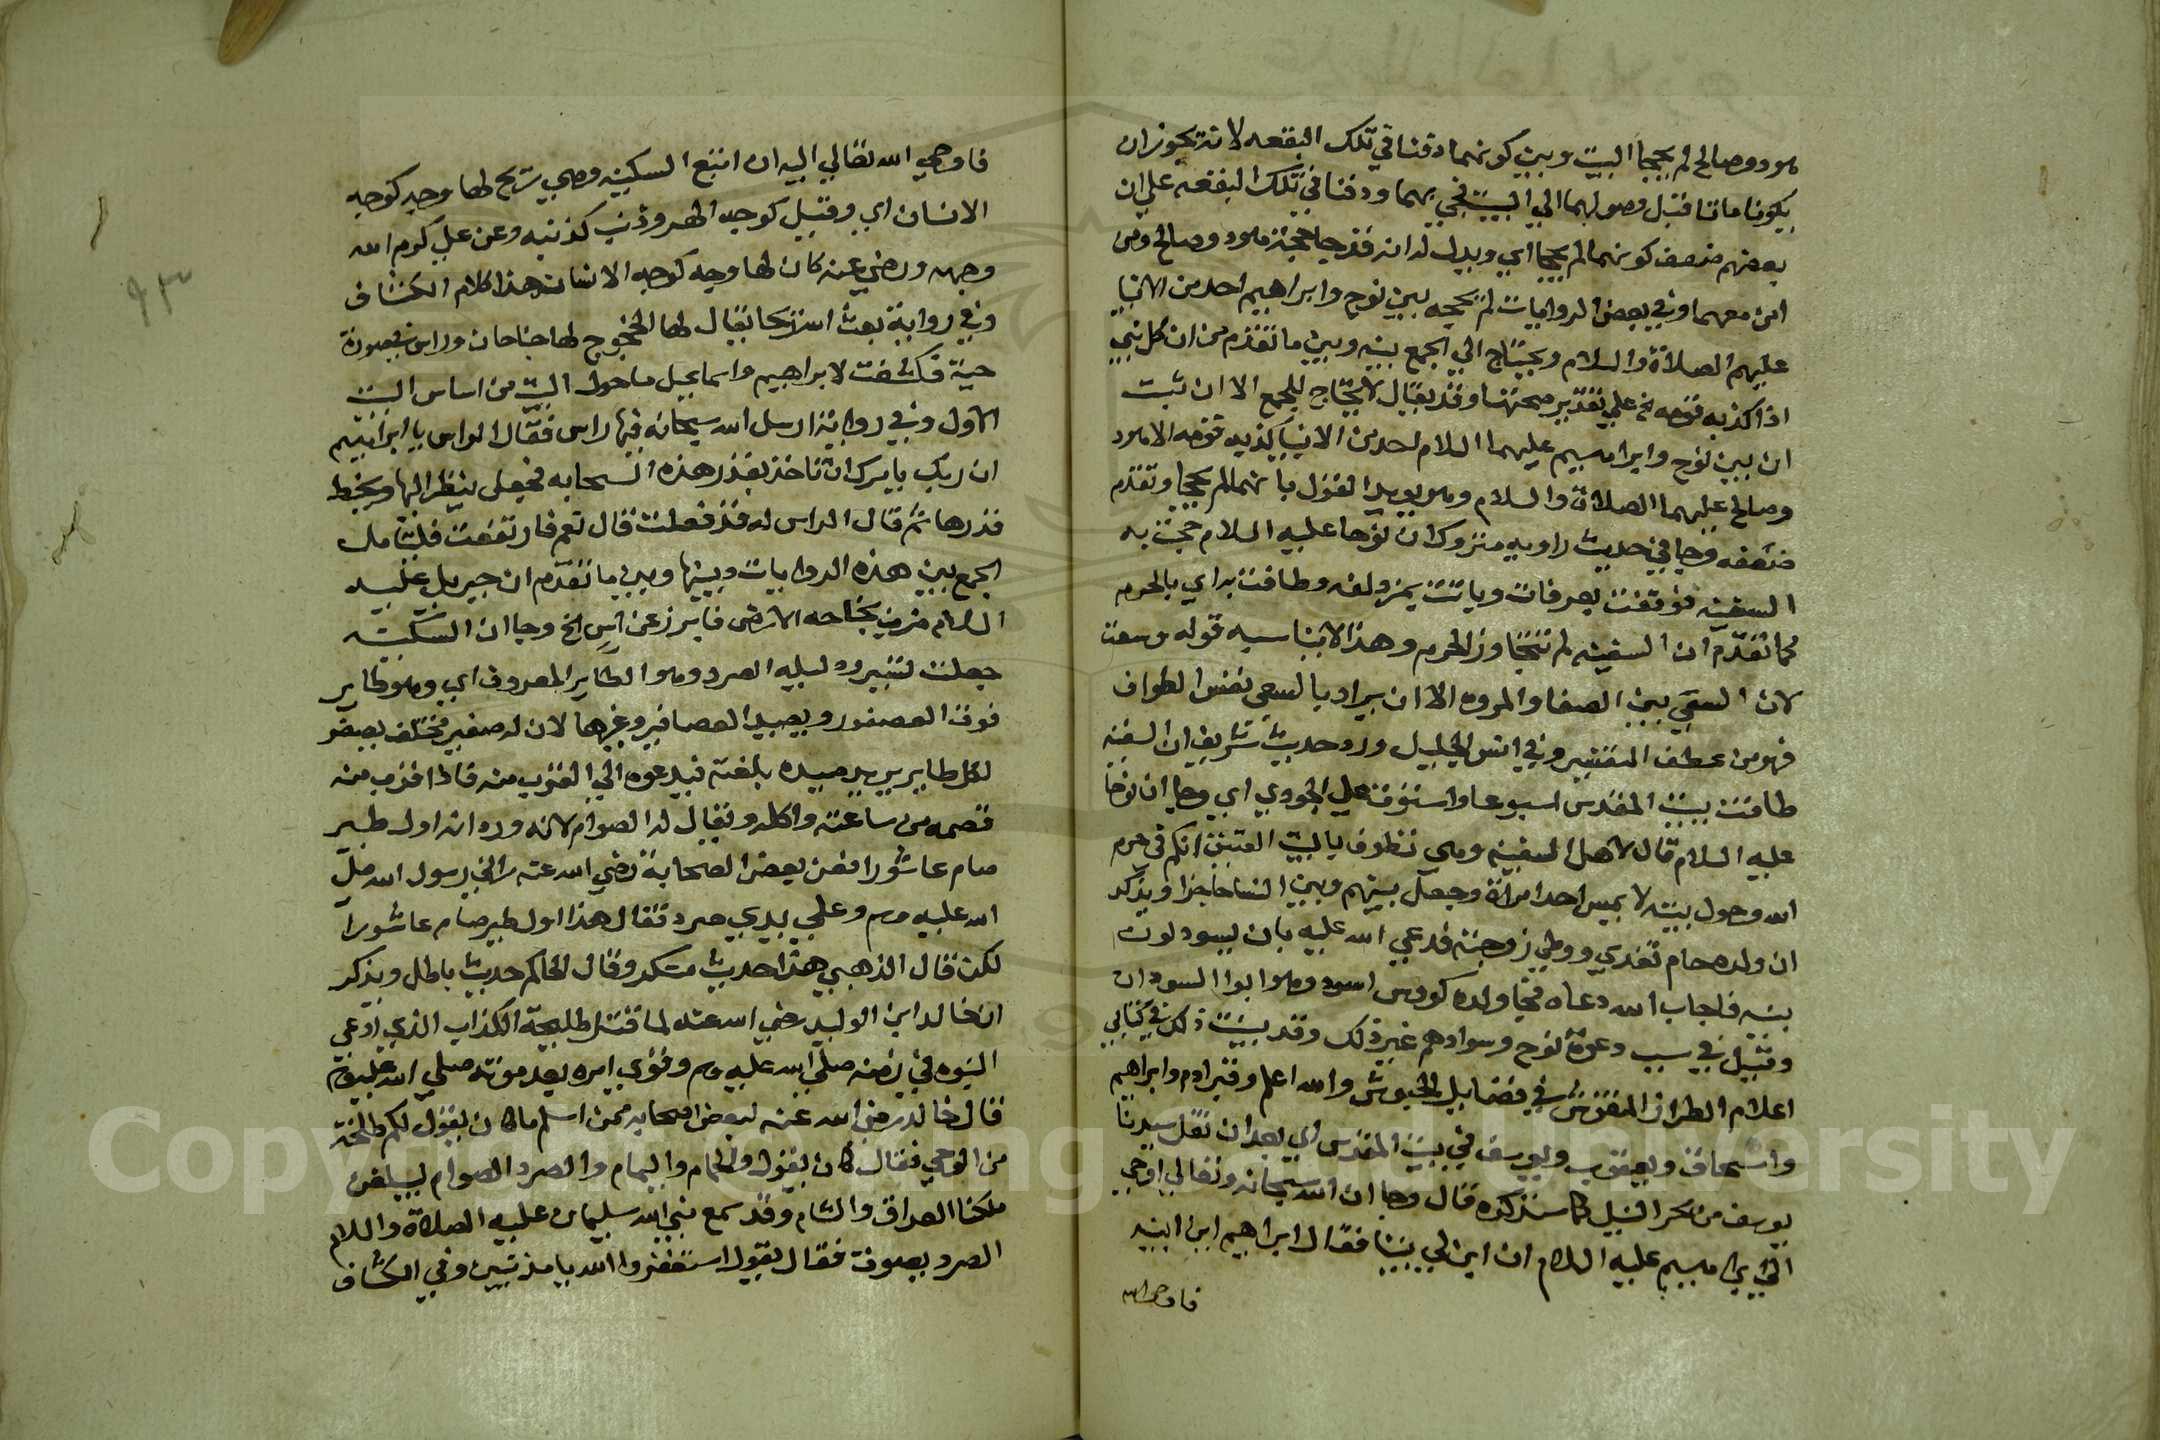 هود وصالح لم يحجا البيت وبين كونهما دفنا في تلك البقعه لانه يجوز ان
يكونا ماتا قبل وصولهما الي البيت فجي بهما ودفنا في تلك البقعه علي ان
بعضهم ضعف كونهما لم يحجا اي ويدل له انه قد جا حجه هود وصالح ومن
امن معهما وفي بعض الروايات لم يحجه بين نوح وابراهيم احد من الانبيا
عليهم الصلاة والسلام ويحتاج الي الجمع بينه وبين ما تقدم من ان كل نبي
اذا كذبه قومه الخ علي تقدير صحتهما وقد يقال لا يحتاج للجمع الا ان ثبت
ان بين نوح وابراهيم عليهما السلام احد من الانبيا كذبه قومه الا هود
وصالح عليهما الصلاة والسلام وهو يويد القول بانهما لم يحجا وتقدم
ضعفه وجا في حديث راويه متروك ان نوحا عليه السلام حجت به
السفينه فوقفت بعرفات وباتت بمزدلفه وطافت به اي بالحرم
لما تقدم ان السفينه لم تتجاوز الحرم وهذا لا يناسبه قوله وسعت
لان السعي بين الصفا والمروه الا ان يراد بالسعي نفس الطواف
فهو من عطف التفسير وفي انس الجليل ورد حديث شريف ان السفينه
طافت ببيت المقدس اسبوعا واستوت علي الجودي اي وجا ان نوحا
عليه السلام قال لاهل السفينه وهي تطوف بالبيت العتيق انكم في حرم
الله وحول بيته لا يمس احد امراة وجعل بينهم وبين النسا حاجزا ويذكر
ان ولده حام تعدي ووطي زوجته فدعي الله عليه بان يسود لون
بنيه فاجاب الله دعاه فجا ولده كوش اسود وهو ابوا السودان
وقيل في سبب دعوة نوح وسوادهم غير ذلك وقد بينت ذلك في كتابي
اعلام الطراز المنقوش في فضايل الحبوش والله اعلم وقبر ادم وابراهيم
واسحاق ويعقوب ويوسف في بيت المقدس اي بعد ان نقل سيدنا
يوسف من بحر النيل كما سنذكره قال وجا ان الله سبحانه وتعالي اوحي
الي ابراهيم عليه السلام ان ابن لي بيتا فقال ابراهيم اين ابنيه
فاوحي الله
فاوحي الله تعالي اليه ان اتبع السكينه وهي ريح لها وجه كوجه
الانسان اي وقيل كوجه الهر وذنب كذنبه وعن علي كرم الله
وجهه ورضي عنه كان لها وجه كوجه الانسان هذا كلام الكشاف
وفي رواية بعث الله ريحا يقال لها الخجوج لها جناحان وراس في صورة
حية فكشفت لابراهيم واسماعيل ما حول البيت من اساس البيت
الاول وفي رواية ارسل الله سحابه فيها راس فقال الراس يا ابراهيم
ان ربك يامرك ان تاخذ بقدر هذه السحابه فجعل ينظر اليها ويخط
قدرها ثم قال الراس له قد فعلت قال نعم فارتفعت فليتامل
الجمع بين هذه الروايات وبينها وبين ما تقدم ان جبريل عليه
السلام ضرب بجناحه الارض فابرز عن اس الخ وجا ان السكينه
جعلت تسير ودليله الصرد وهو الطاير المعروف اي وهو طاير
فوق العصفور ويصيد العصافير وغيرها لان له صفير مختلف يصفر
لكل طاير يريد صيده بلغته فيدعوه الي القرب منه فاذا قرب منه
قصمه من ساعته واكله ويقال له الصوام لانه ورد انه اول طير
صام عاشورا فعن بعض الصحابة رضي الله عنه راني رسول الله صلي
الله عليه وسلم وعلي يدي صرد فقال هذا اول طير صام عاشورا
لكن قال الذهبي هذا حديث منكر وقال الحاكم حديث باطل ويذكر
ان خالد ابن الوليد رضي الله عنه لما قتل طليحة الكذاب الذي ادعي
النبوه في زمنه صلي الله عليه وسلم وقوي امره بعد موته صلي الله عليه وسلم
قال خالد رضي الله عنه لبعض اصحابه ممن اسلم ما كان يقول لكم طليحة
من الوحي فقال كان يقول والحمام واليمام والصرد الصوام ليبلغن
ملكنا العراق والشام وقد سمع نبي الله سليمان عليه الصلاة والسلام
الصرد يصوت فقال يقول استغفروا الله يا مذنبين وفي الكشاف
٩٣
Copyright © King Saud University